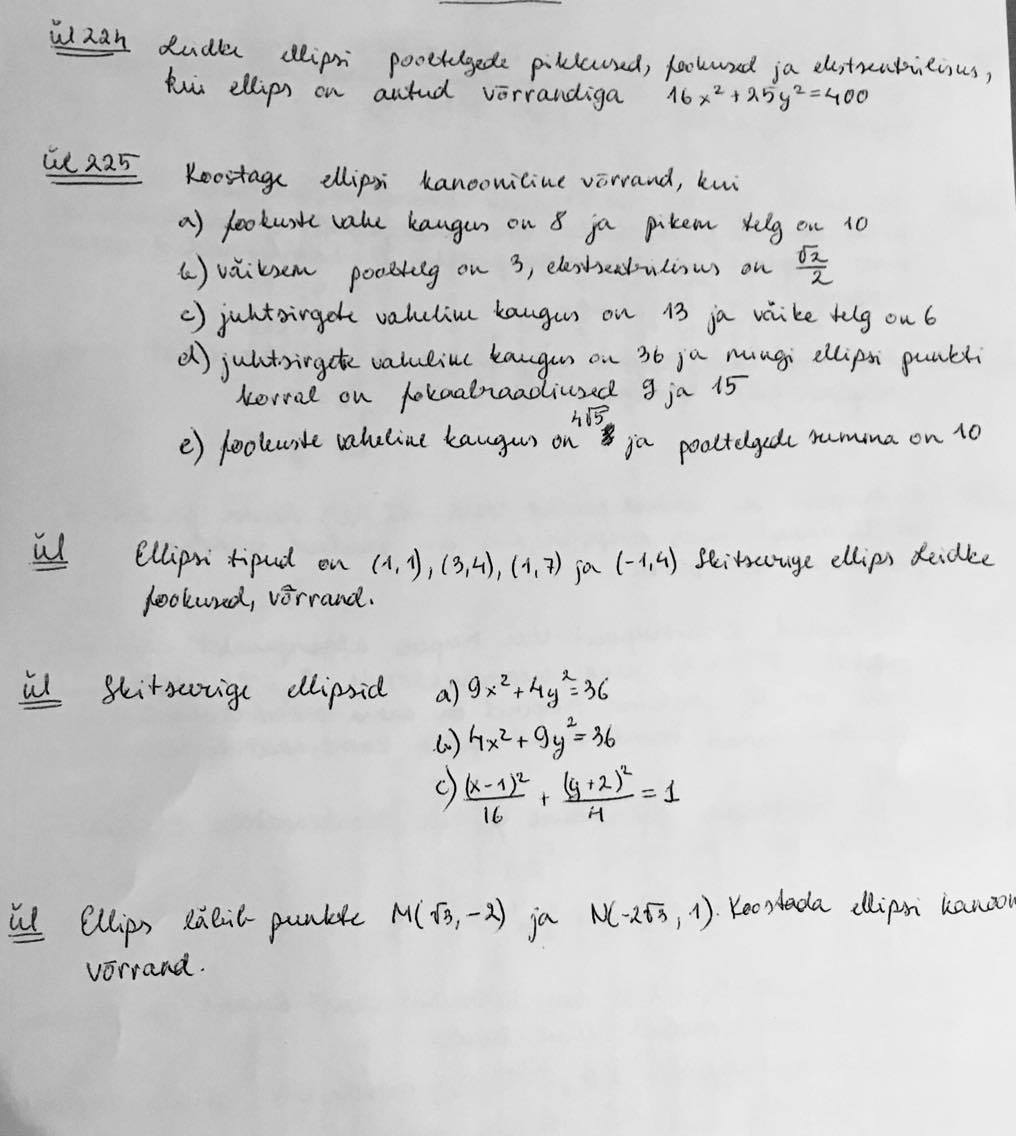 ül 224 Leidke ellipsi pooltelgede pikkused, fookused ja ekstsentrilisus,
kui ellips on antud võrrandiga 16x²+25y²=400
ül 225 Koostage ellipsi kanooniline võrrand, kui
a) fookuste vahe kaugus on 8 ja pikem telg on 10
b) väiksem pooltelg on 3, ekstsentrilisus on √2/2
c) juhtsirgete vaheline kaugus on 13 ja väike telg on 6
d) juhtsirgete vaheline kaugus on 36 ja mingi ellipsi punkti
korral on fokaalraadiused 9 ja 15
e) fookuste vaheline kaugus on 4√5 ja pooltelgede summa on 10
ül Ellipsi tipud on (1,1), (3,4), (1,7) ja (-1,4) Skitseerige ellips Leidke
fookused, võrrand.
ül Skitseerige ellipsid a) 9x²+4y²=36
b) 4x²+9y²=36
c) (x-1)²/16 + (y+2)²/4 = 1
ül Ellips läbib punkte M(√3, -2) ja N(-2√3, 1). Koostada ellipsi kanoon
võrrand.